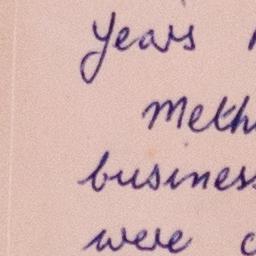 years
Meth
business
were